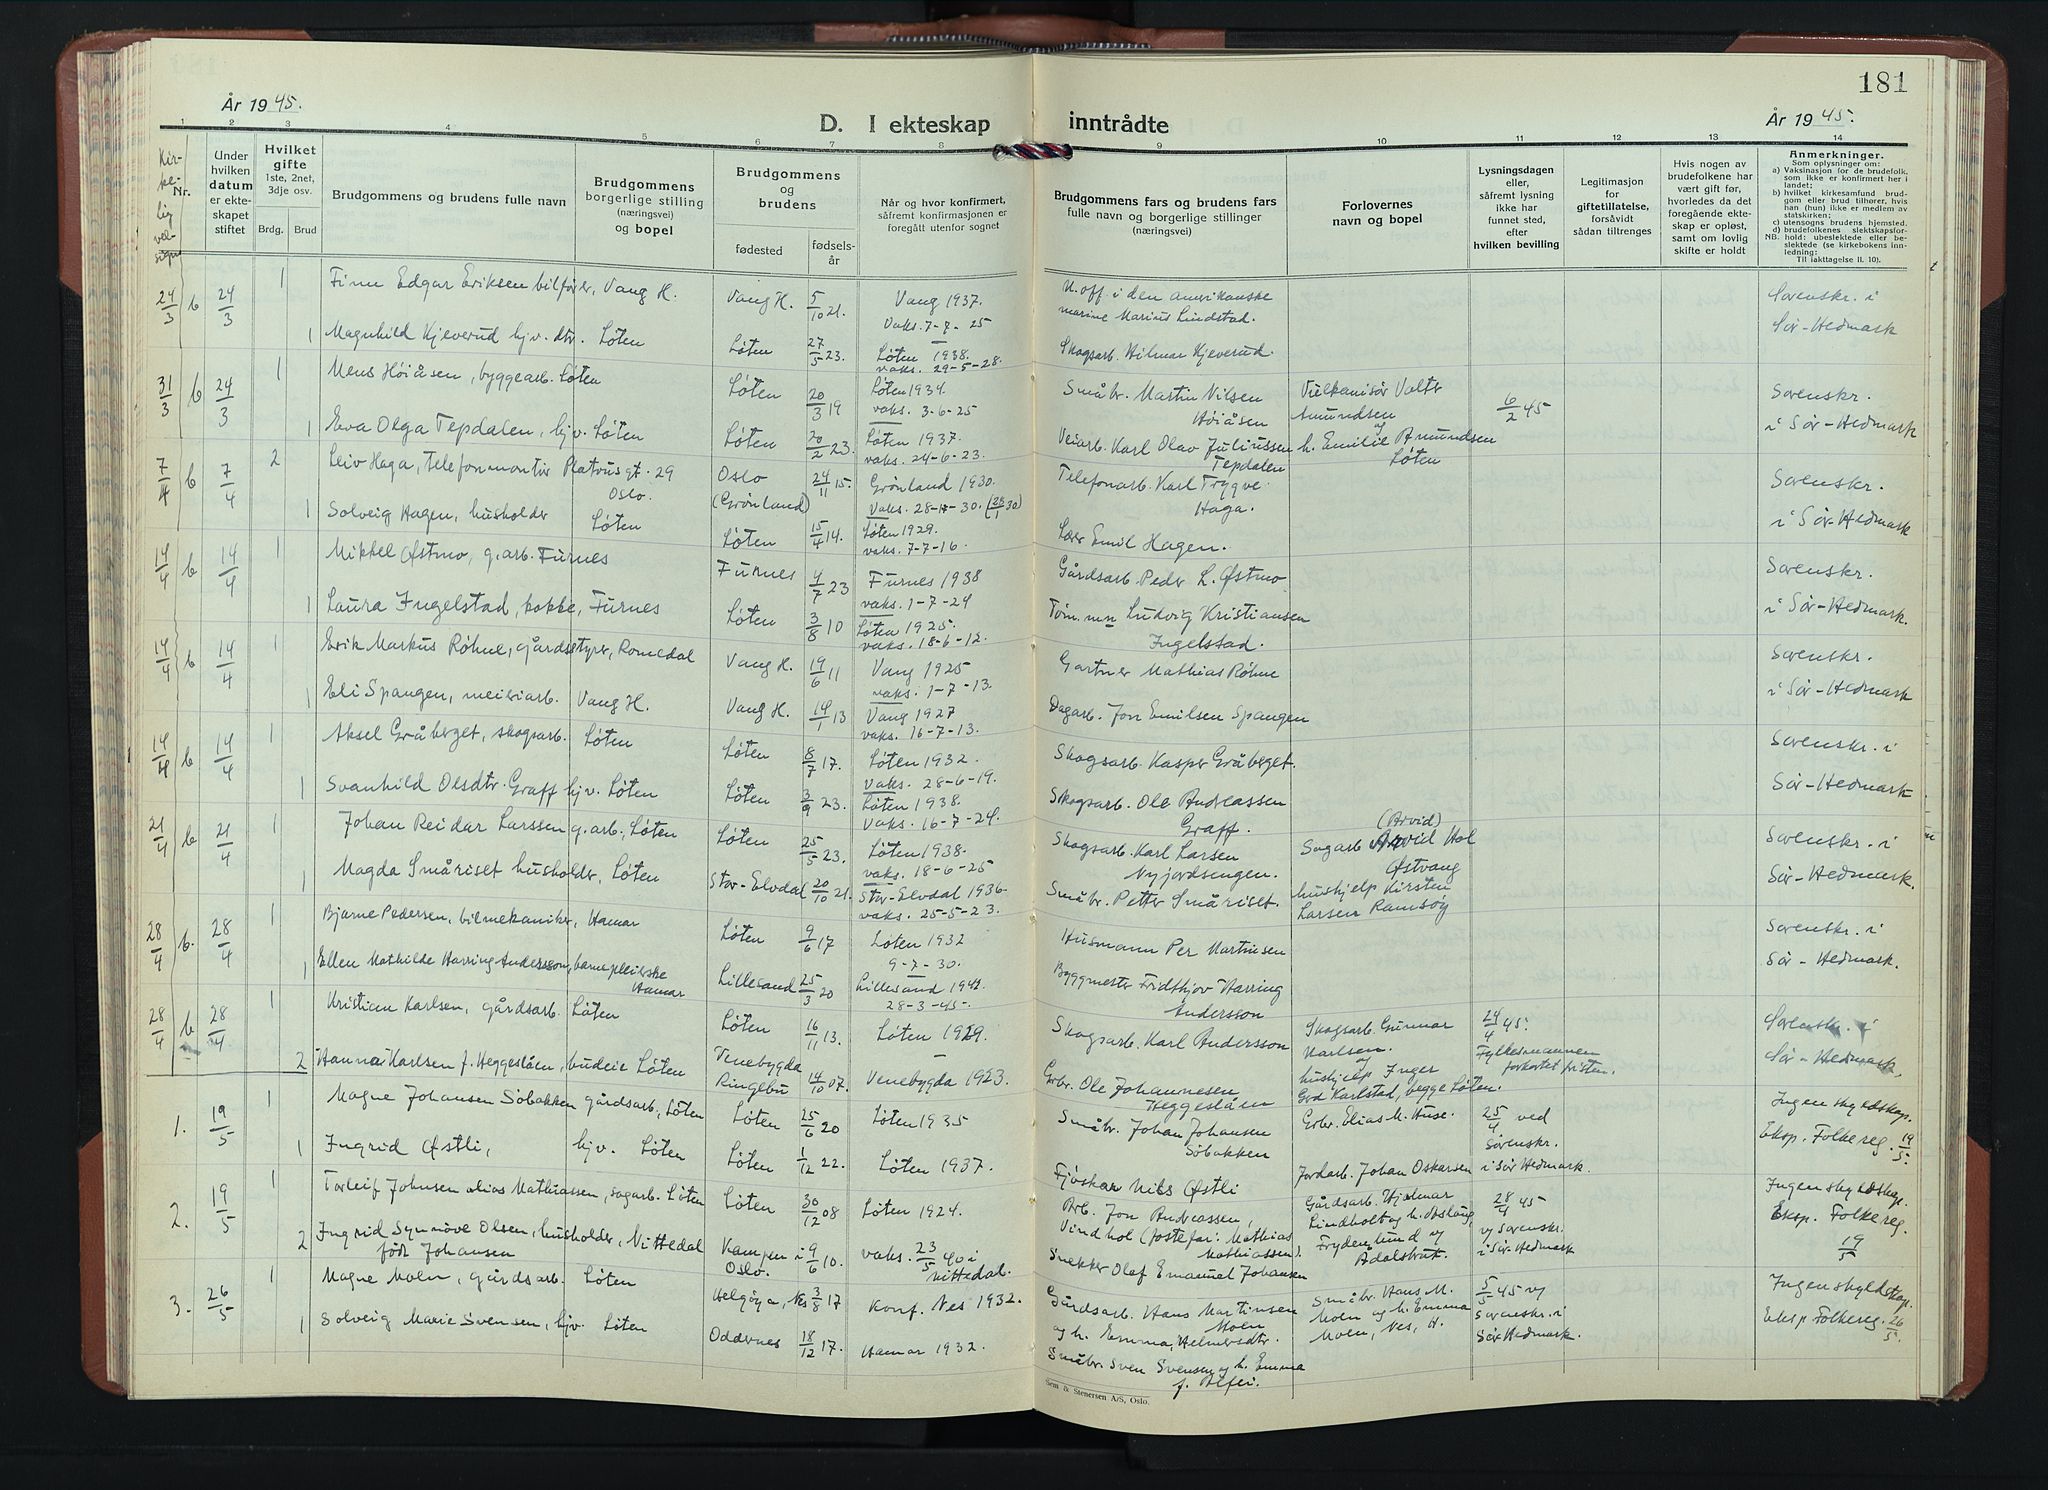 181
År 1945.
D. I ekteskap inntrådte
År 1945.
1 2 3 4 5 6 7 8 9 10 11 12 13 14
Nr.
Under hvilken datum er ekteskapet stiftet
Hvilket gifte 1ste, 2net, 3dje osv.
Brdg. Brud
Brudgommens og brudens fulle navn
Brudgommens borgerlige stilling (næringsvei) og bopel
Brudgommens og brudens
fødested
fødselsår
Når og hvor konfirmert, såfremt konfirmasjonen er foregått utenfor sognet
Brudgommens fars og brudens fars fulle navn og borgerlige stillinger (næringsvei)
Forlovernes navn og bopel
Lysningsdagen eller, såfremt lysning ikke har funnet sted, efter hvilken bevilling
Legitimasjon for giftetillatelse, forsåvidt sådan tiltrenges
Hvis nogen av brudefolkene har vært gift før, hvorledes da det foregående ekteskap er opløst, samt om lovlig skifte er holdt
Anmerkninger.
Som oplysninger om:
a) Vaksinasjon for de brudefolk, som ikke er konfirmert her i landet;
b) hvilket kirkesamfund brudgom eller brud tilhører, hvis han (hun) ikke er medlem av statskirken;
c) utensogns brudens hjemsted.
d) brudefolkenes slektskapsforhold: ubeslektede eller beslektede (se kirkebokens innledning:
NB. Til iakttagelse II. 10).
24/3 b 24/3 1 Finn Edgar Eriksen bilfører, Vang H. Vang H. 5/10 21. Vang 1937. vaks. 7-7-25 U.off. i den amerikanske marine Marius Lindstad. Sorenskr. i Sør-Hedmark
1 Magnhild Kjeverud hjv. dtr. Løten Løten 27/5 23. Løten 1938. vaks. 29-5-28. Skogsarb. Hilmar Kjeverud.
31/3 b 24/3 1 Mens Høiåsen, byggearb. Løten Løten 20/3 19 Løten 1934. vaks. 3-6-25 Småbr. Martin Nilsen Høiåsen Vulkanisør Valter Amundsen og h. Emilie Amundsen Løten 6/2 45 Sorenskr. i Sør-Hedmark
1 Eva Olga Tepdalen, hjv. Løten Løten 20/2 23. Løten 1937. vaks. 24-6-23. Veiarb. Karl Olav Juliussen Tepdalen
7/4 b 7/4 2 Leiv Haga, Telefonmontør Platousgt. 29 Oslo. Oslo (Grønland) 24/11 15. Grønland 1930. Vaks. 28-11-30. Telefonarb. Karl Trygve Haga. Sorenskr. i Sør-Hedmark
1 Solveig Hagen, husholder Løten Løten 15/4 14. Løten 1929. vaks. 7-7-16. Lærer Emil Hagen.
14/4 b 14/4 1 Mikkel Østmo, g.arb. Furnes Furnes 4/7 23 Furnes 1938 vaks. 1-7-24 Gårdsarb. Peder L. Østmo Sorenskr. i Sør-Hedmark.
1 Laura Ingelstad, kokke, Furnes Løten 3/8 10 Løten 1925. vaks. 18-6-12. Tøm.mn Ludvig Kristiansen Ingelstad.
14/4 b 14/4 1 Erik Markus Røhne, gårdsstyrer, Romedal Vang H. 19/6 11 Vang 1925 vaks. 1-7-13. Gartner Mathias Røhne Sorenskr. i Sør-Hedmark
1 Eli Spangen, meieriarb. Vang H. Vang H. 14/1 13 Vang 1927 vaks. 16-7-13. Dagarb. Jon Emilsen Spangen
14/4 b 14/4 1 Aksel Gråberget, skogsarb. Løten Løten 8/7 17. Løten 1932. vaks. 28-6-19. Skogsarb. Kasper Gråberget. Sorenskr. i Sør-Hedmark
1 Svanhild Olsdtr. Graff hjv. Løten Løten 3/9 23. Løten 1938. vaks. 16-7-24. Skogsarb. Ole Andreassen Graff.
21/4 b 21/4 1 Johan Reidar Larssen g.arb., Løten Løten 25/5 23. Løten 1938. vaks. 18-6-25 Skogsarb. Karl Larsen Nyjordsengen. (Arvid) Sagarb Arvid Hol Østvang hushjelp Kirsten Larsen Ramsøy Sorenskr. i Sør-Hedmark.
1 Magda Småriset husholder, Løten Stor-Elvdal 20/10 21. Stor-Elvdal 1936. vaks. 25-5-23. Småbr. Petter Småriset.
28/4 b. 28/4 1 Bjarne Pedersen, bilmekaniker, Hamar Løten 9/6 17 Løten 1932 9-7-30. Husmann Per Martinsen Sorenskr. i Sør-Hedmark.
1 Ellen Mathilde Harring Andersson, barnepleierske Hamar Lillesand 25/3 20 Lillesand 28-3-45. Byggmester Fridthjov Harring Andersson
28/4 b 28/4 1 Kristian Karlsen, gårdsarb. Løten Løten 16/11 13. Løten 1929. Skogsarb. Karl Andersson Skogsarb. Gunnar Karlsen. og hushjelp Inger Karlstad, begge Løten. 24/4 45. Fylkesmannen forkortet fristen. Sorenskr. i Sør-Hedmark.
2 Hanna Karlsen f. Heggeslåen, budeie Løten Venebygda Ringebu 14/10 07. Venebygda 1923. Grbr. Ole Johannesen Heggeslåen
1. 19/5 1 Magne Johansen Søbakken gårdsarb., Løten Løten 25/6 20 Løten 1935 Småbr. Johan Johansen Søbakken Grbr. Elias M. Huse. 25/4 ved Sorenskr. i Sør Hedmark. Ingen skyldskap. Eksp. Folkereg. 19/5.
1 Ingrid Østli, hjv. Løten Løten 1/12 22. Løten 1937. Fjøskar Nils Østli Jordarb. Johan Oskarsen
2. 19/5 1 Torleif Johnsen alias Mathiassen, sagarb. Løten Løten 30/12 08 Løten 1924. Arb. Jon Andreassen, Vindhol (fosterfar: Mathias Mathiassen). Gårdsarb. Hjalmar Lindholt og h. Aslaug, Frydenlund og Ådalsbruk. 28/4 45 v/ Sorenskr. i Sør-Hedmark Ingen skyldskap. Eksp. Folkereg. 19/5
2 Ingrid Synnøve Olsen, husholder, Nittedal født Johansen Kampen i Oslo. 9/6 10. vaks. 23/5 40 i Nittedal. Snekker Olef Emanuel Johansen
3. 26/5 1 Magne Moen, gårdsarb. Løten Helgøya, Nes 3/8 17 Konf. Nes 1932. Gårdsarb. Hans Martinsen Moen og h. Emma, Helmersdtr. Småbr. Hans M. Moen og h. Emma Moen, Nes, H. 5/5 45 v/ Sorenskr. i Sør Hedmark. Ingen skyldskap. Eksp. Folkereg. 26/5.
1 Solveig Marie Svensen, hjv. Løten Oddernes 18/12 17. Hamar 1932. Småbr. Sven Svensen og h. Emma
Sem & Stenersen A/S, Oslo.